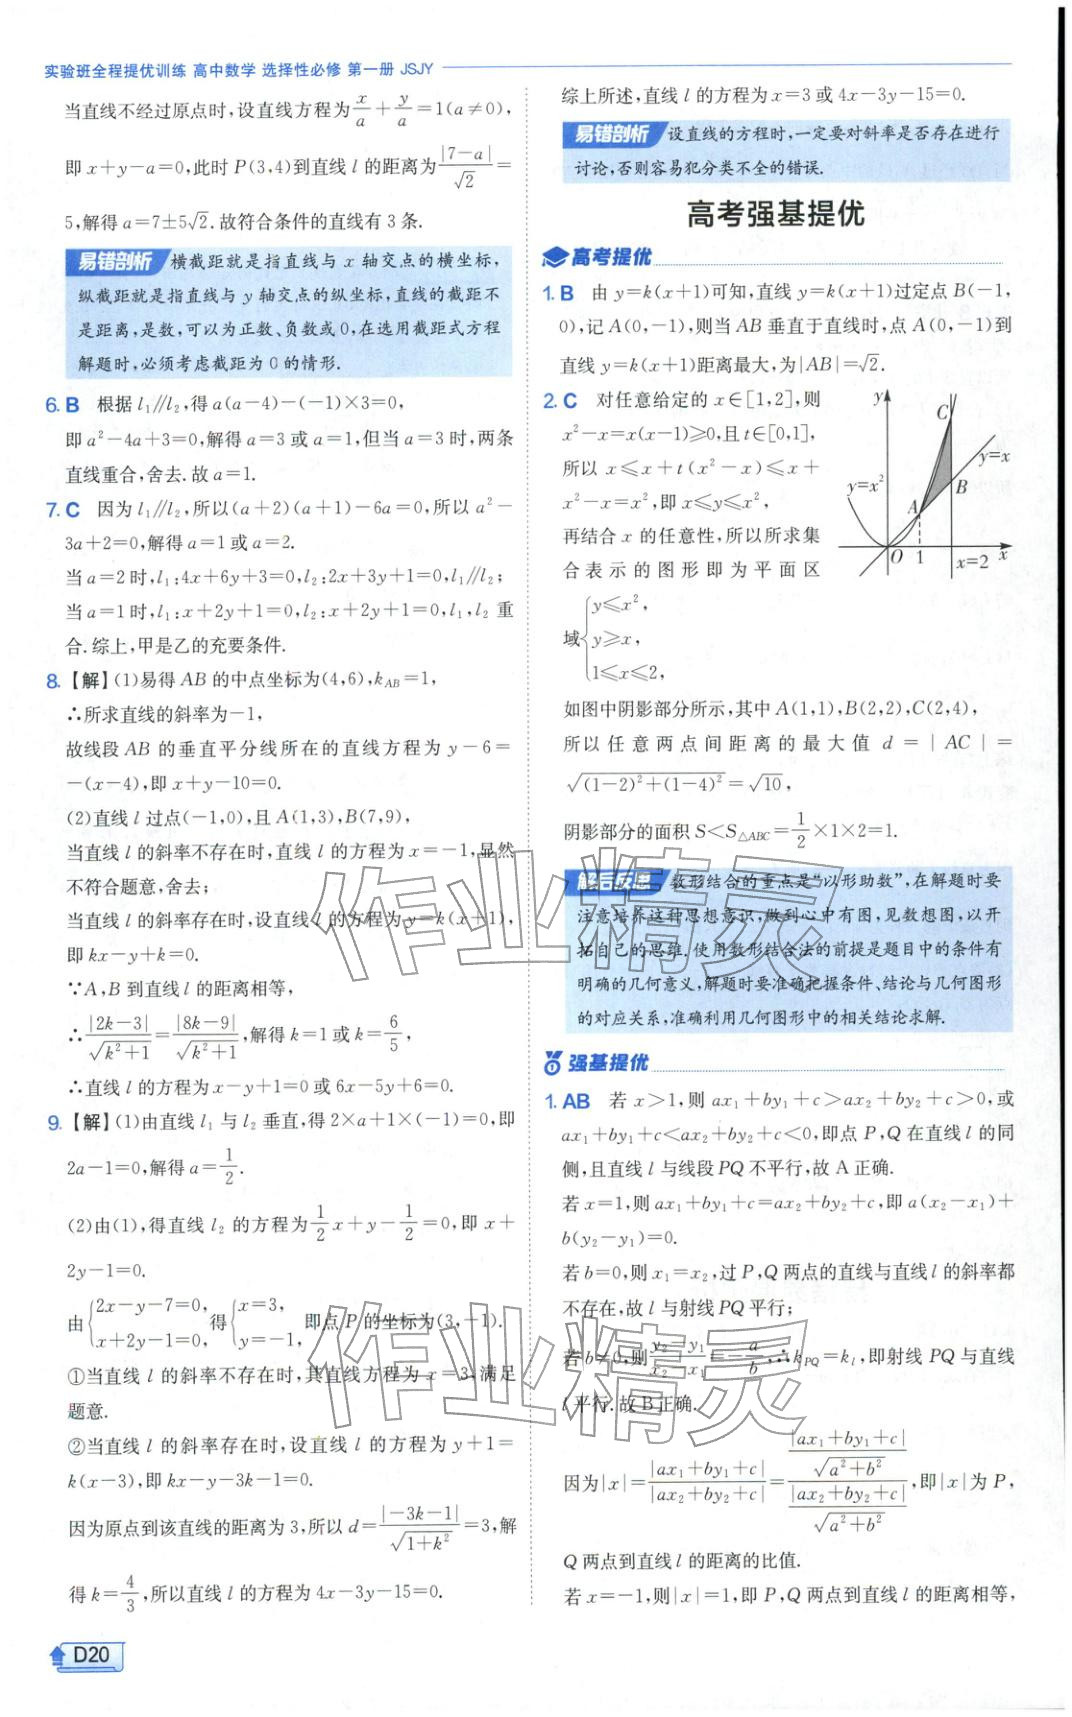 实验班全程提优训练 高中数学 选择性必修 第一册 JSJY
当直线不经过原点时,设直线方程为x/a+y/a=1(a≠0),
即x+y-a=0,此时P(3,4)到直线l的距离为|7-a|/√2=
5,解得a=7±5√2.故符合条件的直线有3条.
易错剖析 横截距就是指直线与x轴交点的横坐标,
纵截距就是指直线与y轴交点的纵坐标,直线的截距不
是距离,是数,可以为正数、负数或0,在选用截距式方程
解题时,必须考虑截距为0的情形.
6. B 根据l₁//l₂,得a(a-4)-(-1)×3=0,
即a²-4a+3=0,解得a=3或a=1,但当a=3时,两条
直线重合,舍去.故a=1.
7. C 因为l₁//l₂,所以(a+2)(a+1)-6a=0,所以a²-
3a+2=0,解得a=1或a=2.
当a=2时,l₁:4x+6y+3=0,l₂:2x+3y+1=0,l₁//l₂;
当a=1时,l₁:x+2y+1=0,l₂:x+2y+1=0,l₁,l₂重
合.综上,甲是乙的充要条件.
8.【解】(1)易得AB的中点坐标为(4,6),k_AB=1,
∴所求直线的斜率为-1,
故线段AB的垂直平分线所在的直线方程为y-6=
-(x-4),即x+y-10=0.
(2)直线l过点(-1,0),且A(1,3),B(7,9),
当直线l的斜率不存在时,直线l的方程为x=-1,显然
不符合题意,舍去;
当直线l的斜率存在时,设直线l的方程为y=k(x+1),
即kx-y+k=0.
∵A,B到直线l的距离相等,
∴|2k-3|/√(k²+1)=|8k-9|/√(k²+1),解得k=1或k=6/5,
∴直线l的方程为x-y+1=0或6x-5y+6=0.
9.【解】(1)由直线l₁与l₂垂直,得2×a+1×(-1)=0,即
2a-1=0,解得a=1/2.
(2)由(1),得直线l₂的方程为1/2x+y-1/2=0,即x+
2y-1=0.
由{2x-y-7=0, x+2y-1=0 得{x=3, y=-1, 即点P的坐标为(3,-1).
①当直线l的斜率不存在时,其直线方程为x=3,满足
题意.
②当直线l的斜率存在时,设直线l的方程为y+1=
k(x-3),即kx-y-3k-1=0.
因为原点到该直线的距离为3,所以d=|-3k-1|/√(1+k²)=3,解
得k=4/3,所以直线l的方程为4x-3y-15=0.
D20
综上所述,直线l的方程为x=3或4x-3y-15=0.
易错剖析 设直线的方程时,一定要对斜率是否存在进行
讨论,否则容易犯分类不全的错误.
高考强基提优
高考提优
1. B 由y=k(x+1)可知,直线y=k(x+1)过定点B(-1,
0),记A(0,-1),则当AB垂直于直线时,点A(0,-1)到
直线y=k(x+1)距离最大,为|AB|=√2.
2. C 对任意给定的x∈[1,2],则
x²-x=x(x-1)≥0,且t∈[0,1],
所以x≤x+t(x²-x)≤x+
x²-x=x²,即x≤y≤x²,
再结合x的任意性,所以所求集
合表示的图形即为平面区
域{y≤x², y≥x, 1≤x≤2,
y
C
y=x
y=x²
A
B
O
1
x=2
x
如图中阴影部分所示,其中A(1,1),B(2,2),C(2,4),
所以任意两点间距离的最大值d=|AC|=
√((1-2)²+(1-4)²)=√10,
阴影部分的面积S<S△ABC=1/2×1×2=1.
解后反思 数形结合的重点是“以形助数”,在解题时要
注意培养这种思想意识,做到心中有图,见数想图,以开
拓自己的思维.使用数形结合法的前提是题目中的条件有
明确的几何意义,解题时要准确把握条件、结论与几何图形
的对应关系,准确利用几何图形中的相关结论求解.
强基提优
1. AB 若x>1,则ax₁+by₁+c>ax₂+by₂+c>0,或
ax₁+by₁+c<ax₂+by₂+c<0,即点P,Q在直线l的同
侧,且直线l与线段PQ不平行,故A正确.
若x=1,则ax₁+by₁+c=ax₂+by₂+c,即a(x₂-x₁)+
b(y₂-y₁)=0.
若b=0,则x₁=x₂,过P,Q两点的直线与直线l的斜率都
不存在,故l与射线PQ平行;
若b≠0,则(y₂-y₁)/(x₂-x₁)=-a/b,∴k_PQ=k_l,即射线PQ与直线
l平行.故B正确.
因为|x|=|ax₁+by₁+c|/|ax₂+by₂+c|=(|ax₁+by₁+c|/√(a²+b²))/(|ax₂+by₂+c|/√(a²+b²)),即|x|为P,
Q两点到直线l的距离的比值.
若x=-1,则|x|=1,即P,Q两点到直线l的距离相等,
作业精灵
作业精灵